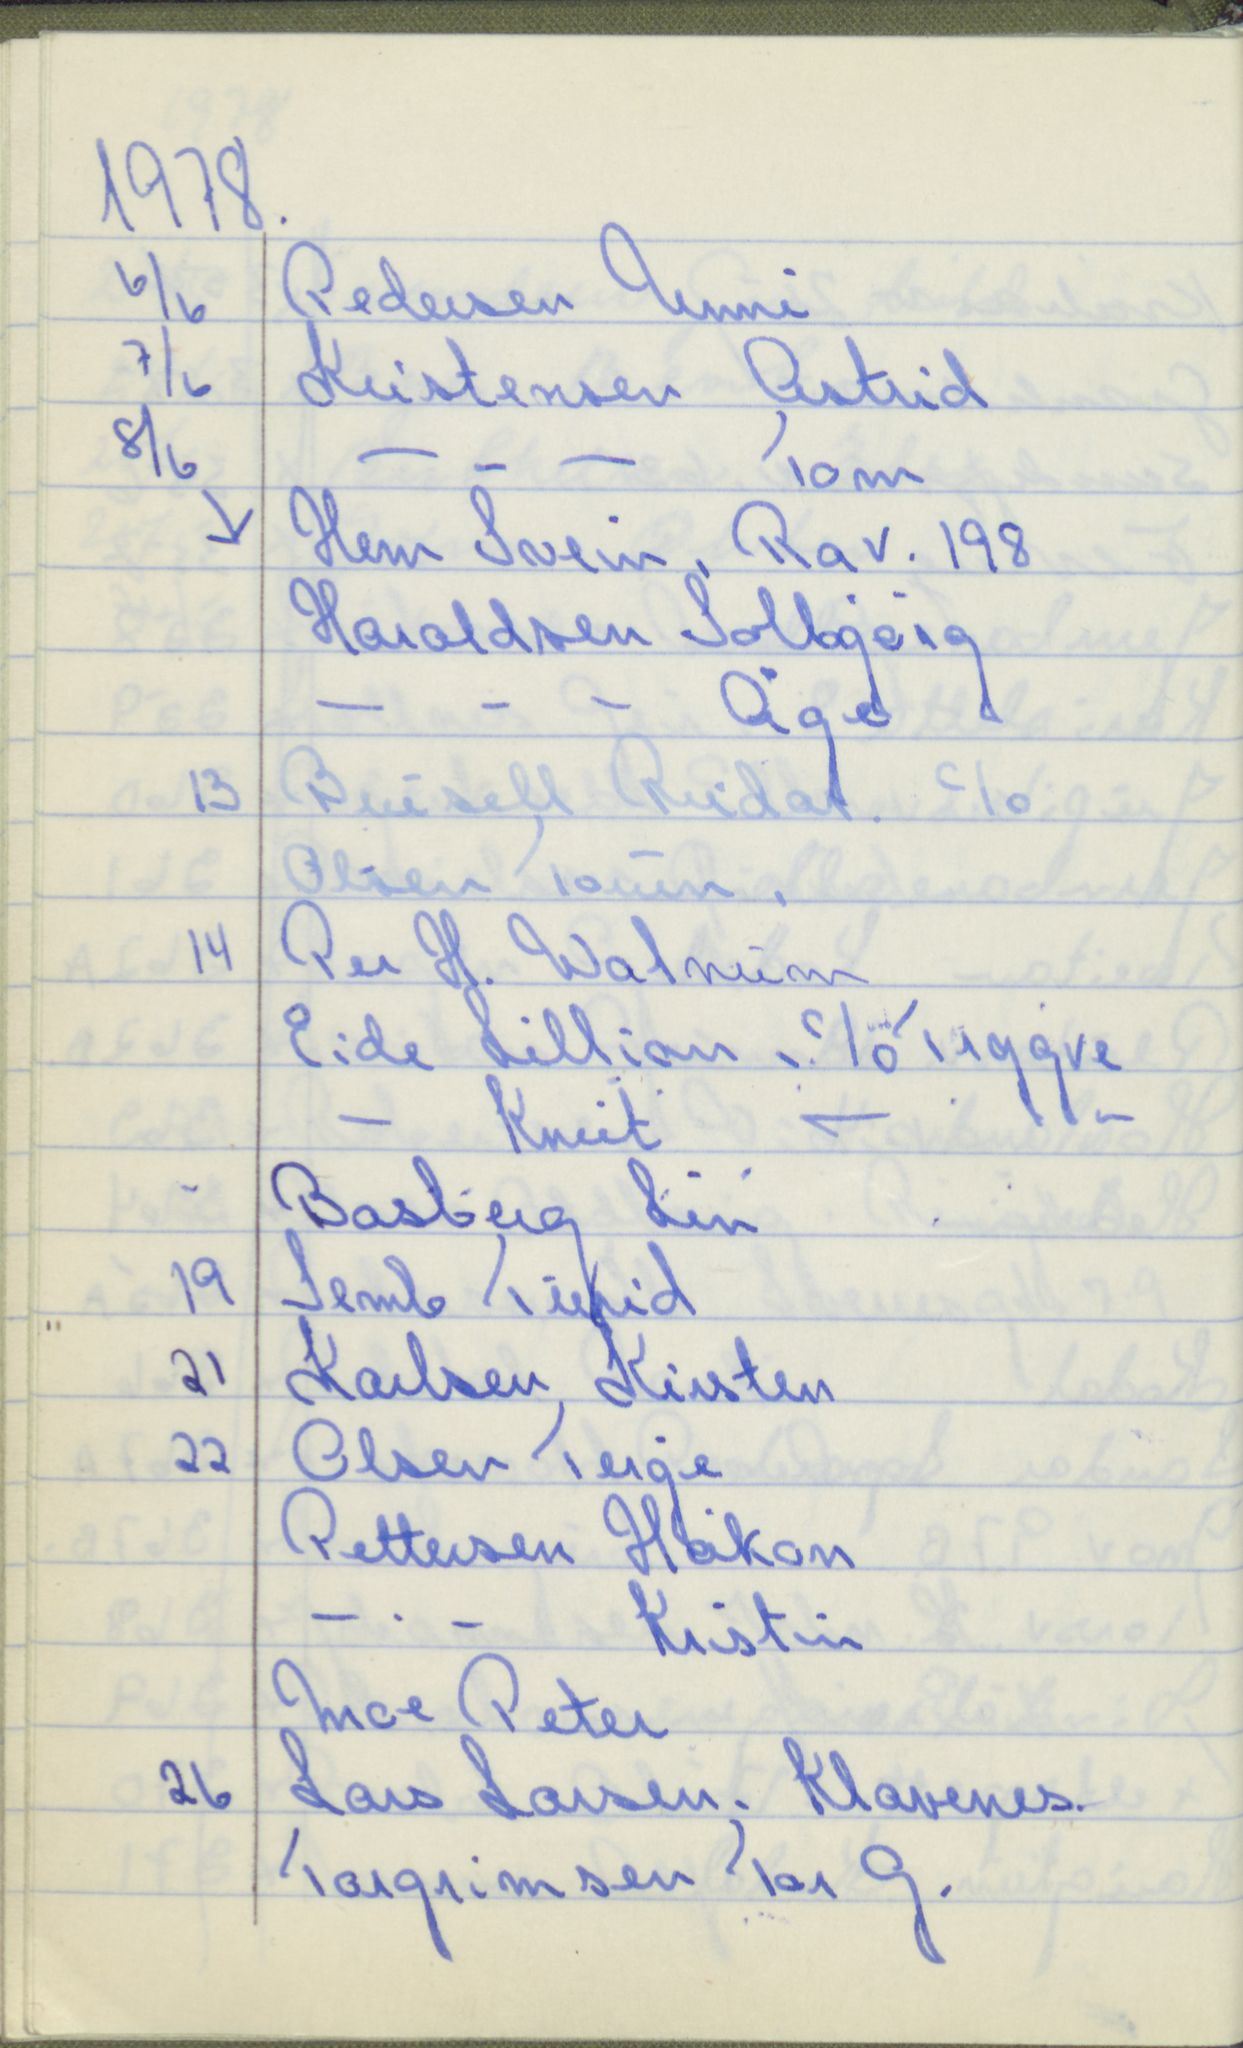 1978.
6/6 Pedersen Unni
7/6 Kristensen Astrid
8/6 — - — Tom
↓ Hem Svein, Rav. 198
Haraldsen Solbjörg
— - - Åge
13 Reidar. c/o
Olsen Torun.
14 Per H. Walnum
Eide Lillian, c/o Tryggve
— Knut — -
- Basberg Liv
19 Semb Turid
21 Karlsen Kirsten
22 Olsen Terje
Pettersen Håkon
— . - Kristin
Moe Peter
26 Lars Larsen. Klavenes.
Torgrimsen Tor G.